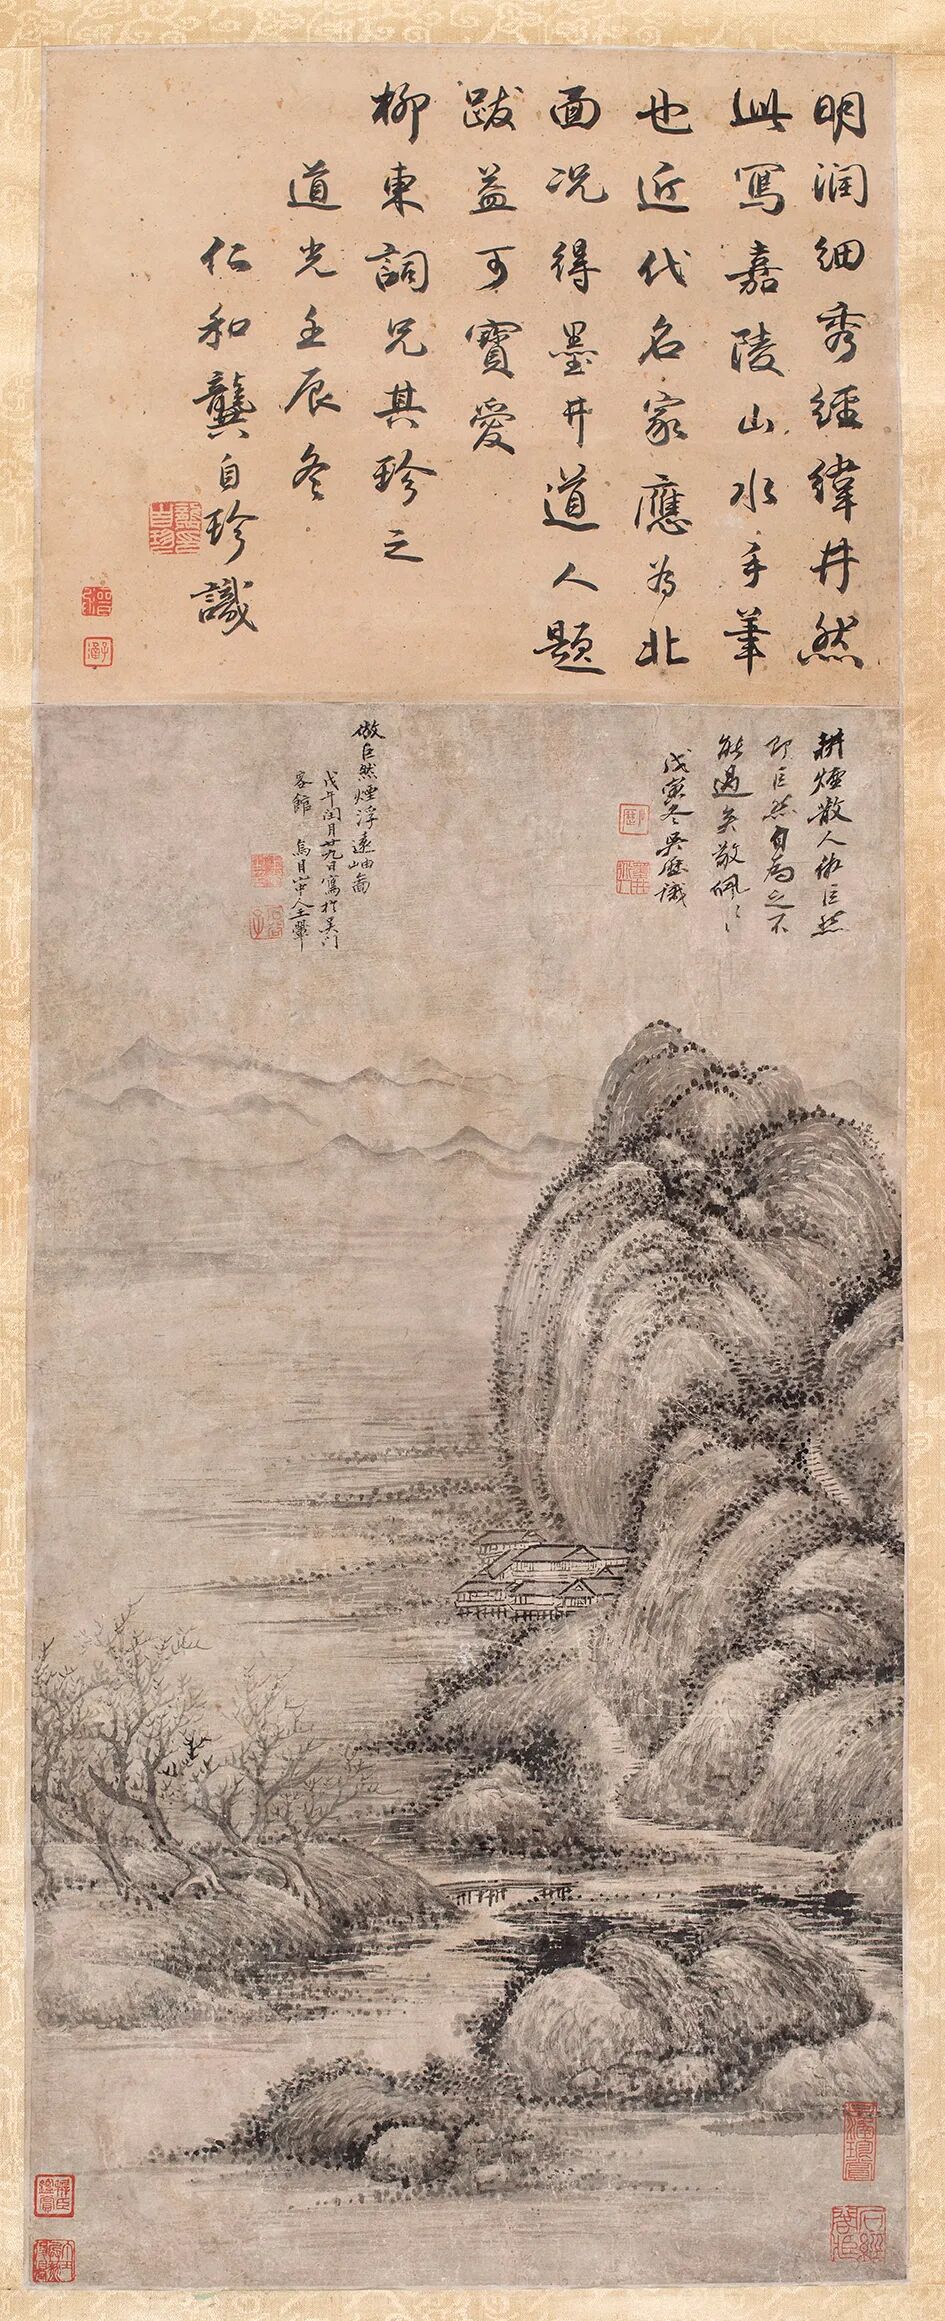 明润细秀经纬井然
此写嘉陵山水手笔
也近代名家应为北
面况得墨井道人题
跋益可寶愛
柳東詞兄其珍之
道光壬辰冬
仁和龔自珍識
耕煙散人仿巨然
即巨然自為之不
能過矣敬佩〻〻
戊寅冬吳歷識
倣巨然煙浮遠岫圖
戊午閏月廿九日寫於吳门
客館 烏目山中人王翬